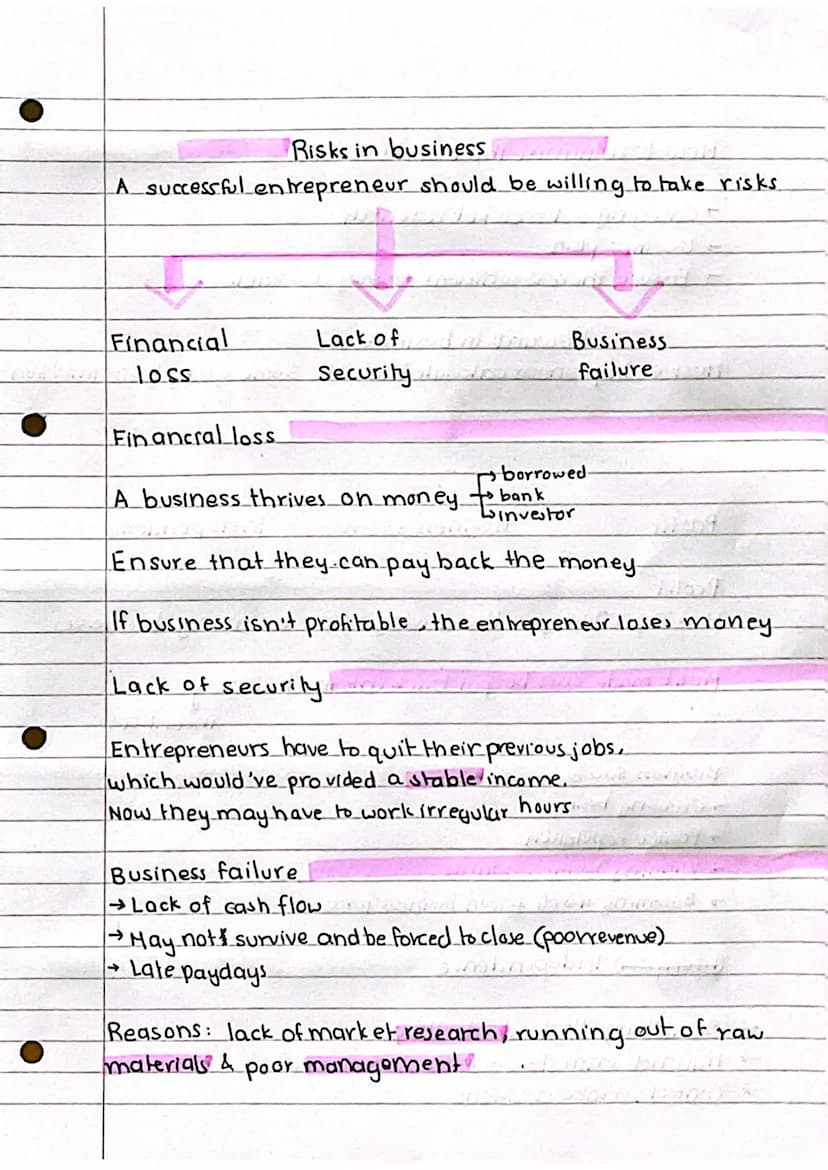 Risks in business
A successful entrepreneur should be willing to take risks
Financial loss
Lack of security
Business failure
Financial loss
A business thrives on money → borrowed
→ bank
→ investor
Ensure that they can pay back the money
If business isn't profitable, the entrepreneur loses money
Lack of security
Entrepreneurs have to quit their previous jobs,
which would've provided a stable income.
Now they may have to work irregular hours
Business failure
→ Lack of cash flow
→ May not survive and be forced to close (poor revenue)
→ Late paydays
Reasons: lack of market research, running out of raw
materials & poor management